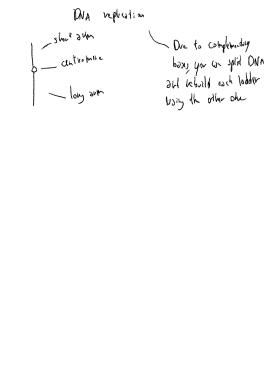 DNA replication
short arm
centromere
long arm
Due to complementary
bases you can split DNA
and rebuild each ladder
using the other one